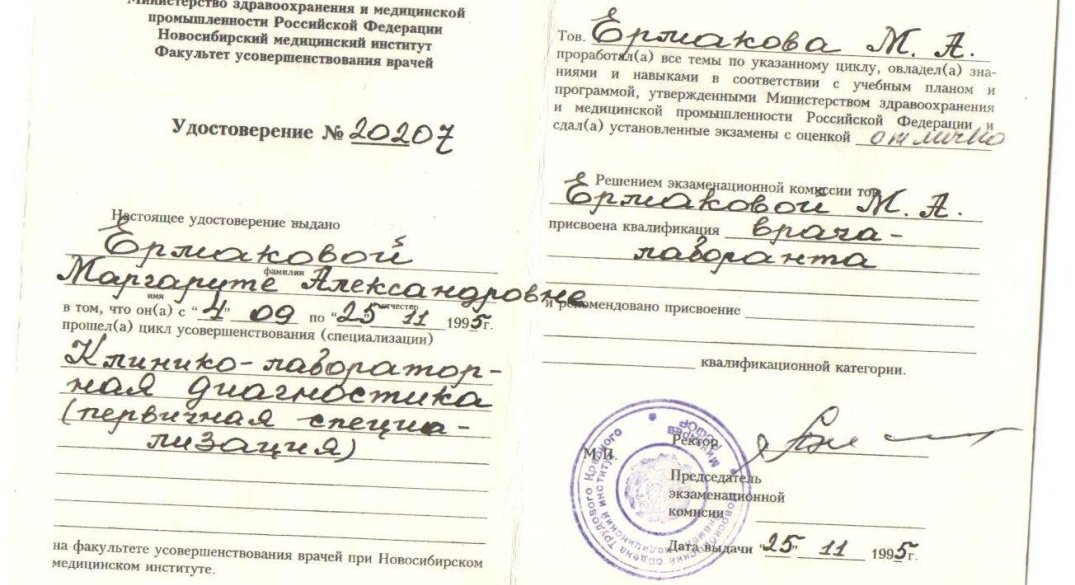 Министерство здравоохранения и медицинской
промышленности Российской Федерации
Новосибирский медицинский институт
Факультет усовершенствования врачей
Удостоверение № 20207
Настоящее удостоверение выдано
Ермаковой
фамилия
Маргарите Александровне
имя отчество
в том, что он(а) с "4" 09 по "25" 11 1995г.
прошел(а) цикл усовершенствования (специализации)
Клинико-лаборатор-
ная диагностика
(первичная специа-
лизация)
на факультете усовершенствования врачей при Новосибирском
медицинском институте.
Тов. Ермакова М. А.
проработал(а) все темы по указанному циклу, овладел(а) зна-
ниями и навыками в соответствии с учебным планом и
программой, утвержденными Министерством здравоохранения
и медицинской промышленности Российской Федерации и
сдал(а) установленные экзамены с оценкой отлично
Решением экзаменационной комиссии тов.
Ермаковой М. А.
присвоена квалификация врача-
лаборанта
и рекомендовано присвоение
квалификационной категории.
М.П.
Ректор
Председатель
экзаменационной
комиссии
Дата выдачи "25" 11 1995г.